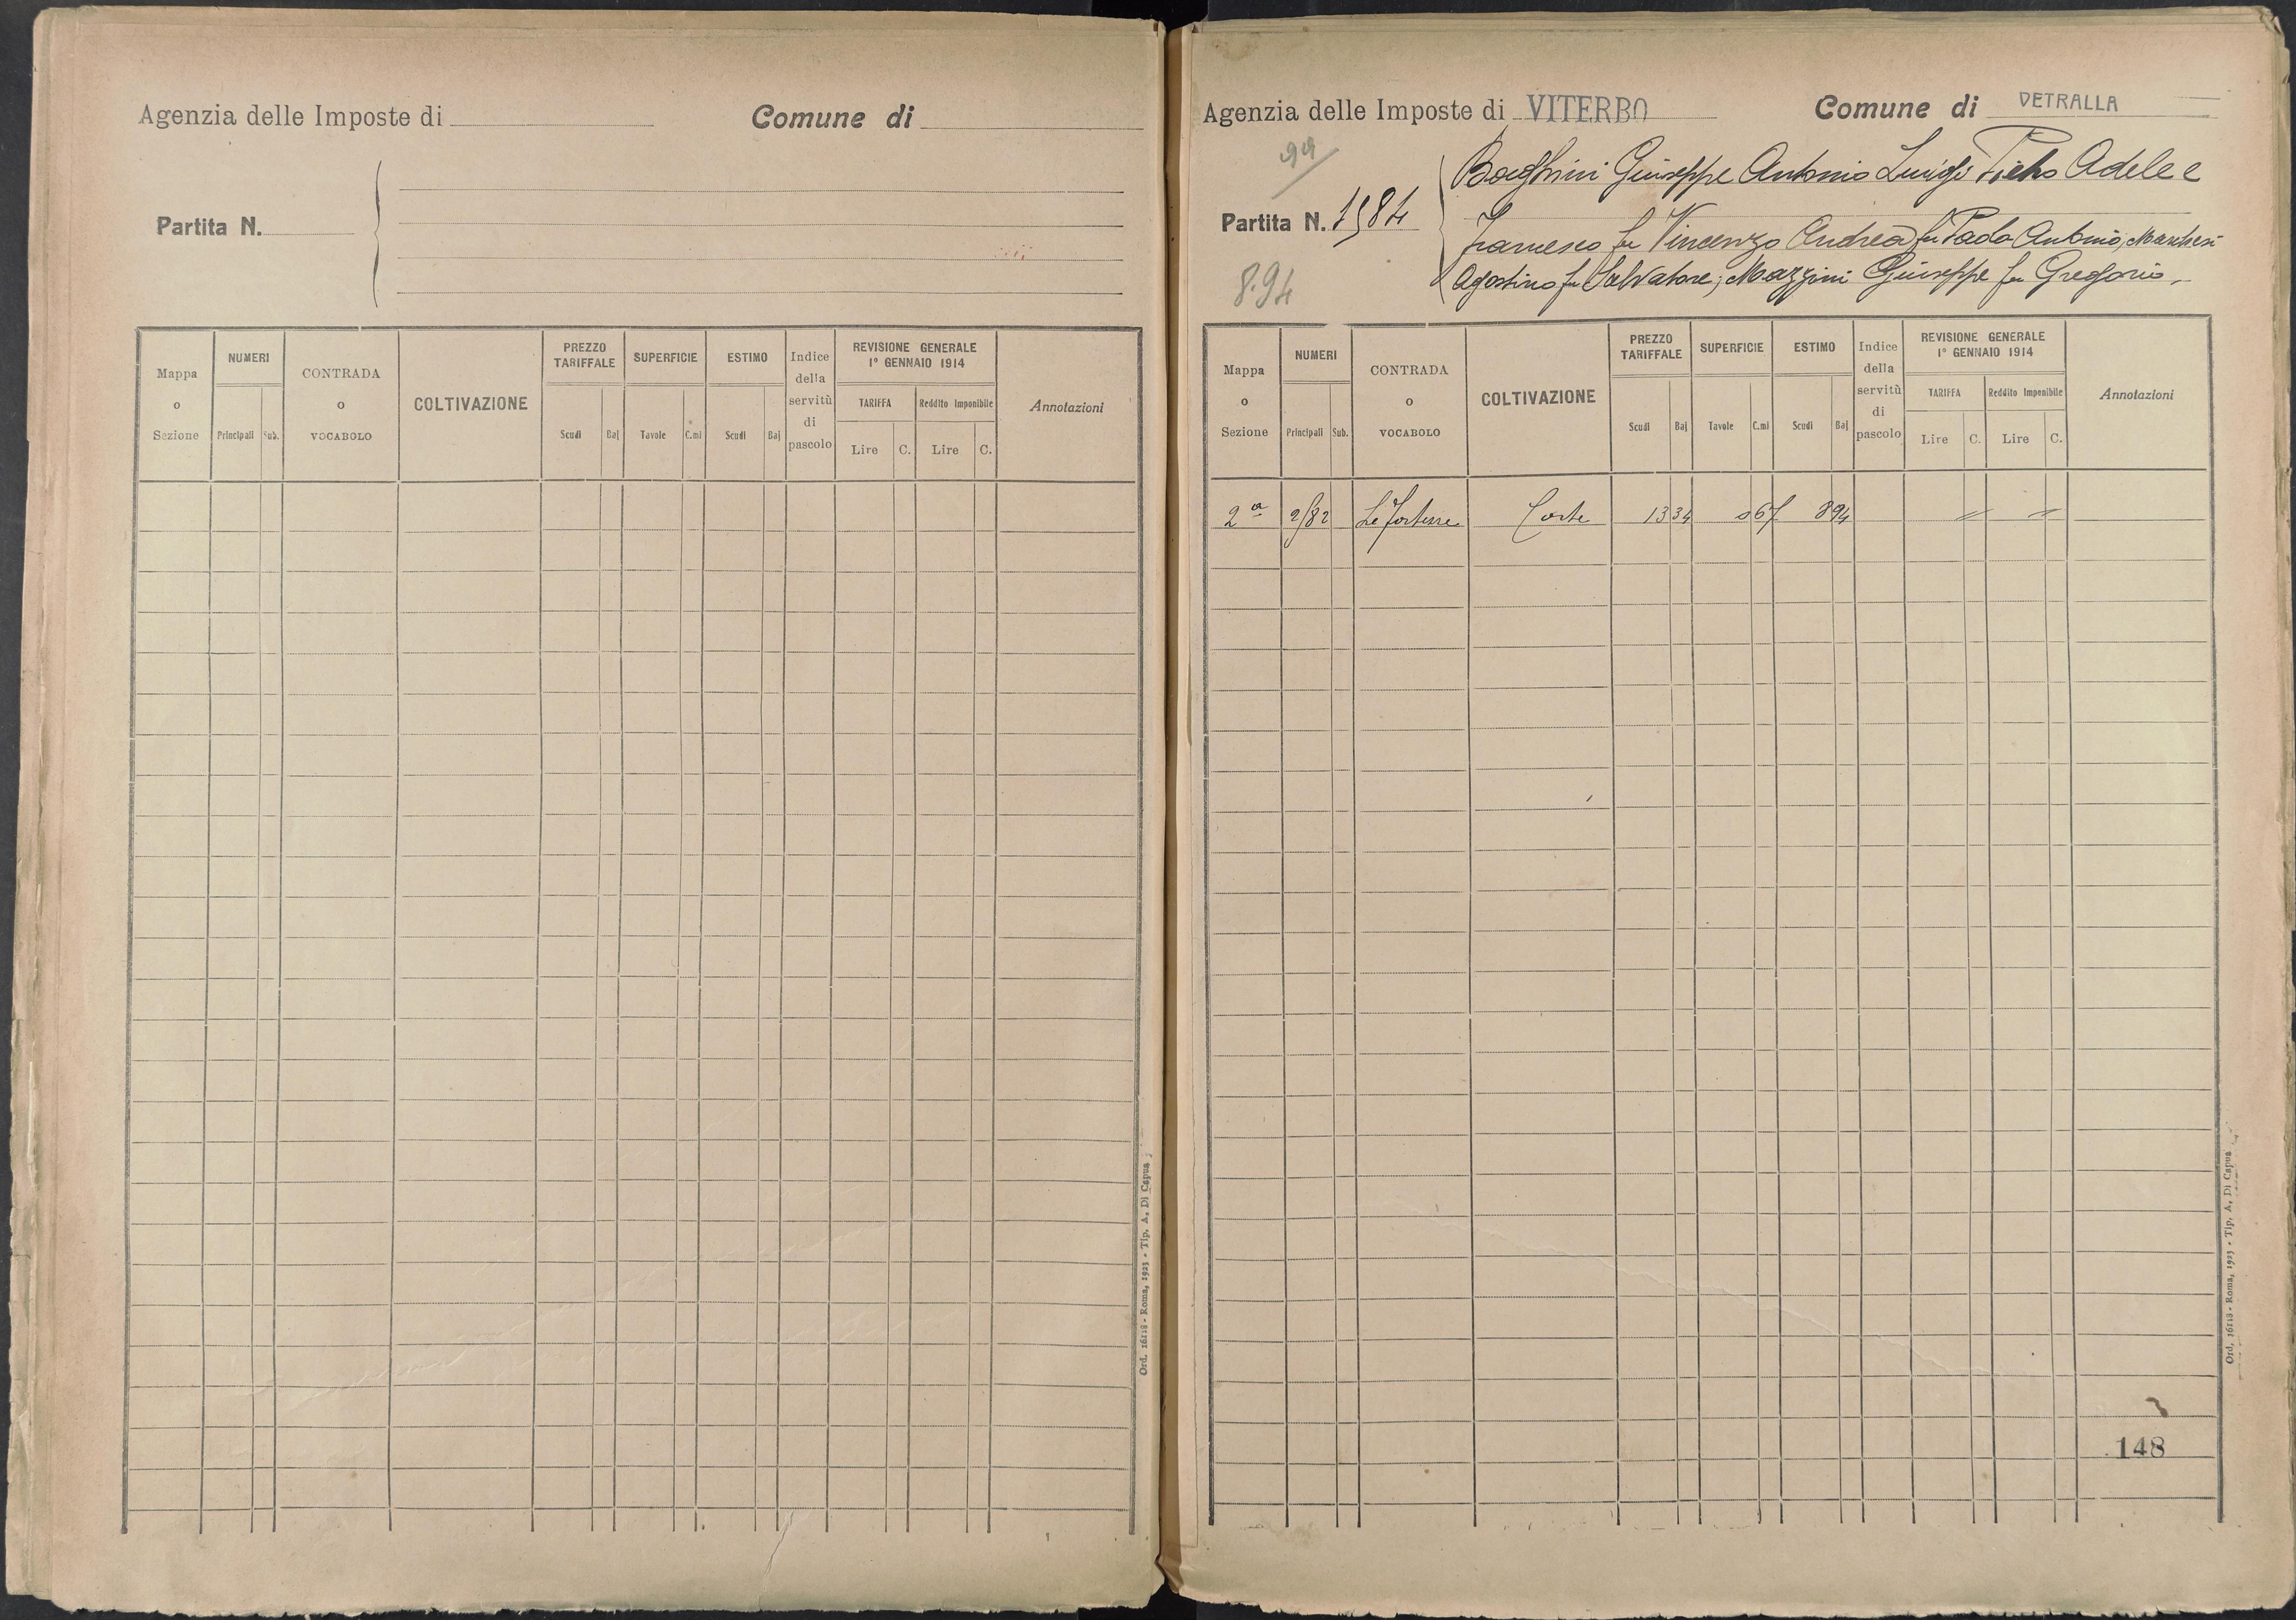 Agenzia delle Imposte di
Comune di
Partita N.
Mappa o Sezione
NUMERI
Principali
Sub.
CONTRADA o VOCABOLO
COLTIVAZIONE
PREZZO TARIFFALE
Scudi
Baj
SUPERFICIE
Tavole
C.mi
ESTIMO
Scudi
Baj
Indice della servitù di pascolo
REVISIONE GENERALE
1° GENNAIO 1914
TARIFFA
Reddito Imponibile
Lire
C.
Lire
C.
Annotazioni
Ord. 16118 - Roma, 1923 - Tip. A. Di Capua
Agenzia delle Imposte di VITERBO
Comune di VETRALLA
99
Borghini Giuseppe Antonio Luigi Pietro Adele e
Partita N. 1584
Francesco fu Vincenzo Andrea fu Paolo Antonio, Marchesi
Agostino fu Salvatore; Mazzini Giuseppe fu Gregorio
8.94
Mappa o Sezione
NUMERI
Principali
Sub.
CONTRADA o VOCABOLO
COLTIVAZIONE
PREZZO TARIFFALE
Scudi
Baj
SUPERFICIE
Tavole
C.mi
ESTIMO
Scudi
Baj
Indice della servitù di pascolo
REVISIONE GENERALE
1° GENNAIO 1914
TARIFFA
Reddito Imponibile
Lire
C.
Lire
C.
Annotazioni
2a 2/82 Le Fortezze Corte 13 34 067 8 94 = =
148
Ord. 16118 - Roma, 1923 - Tip. A. Di Capua